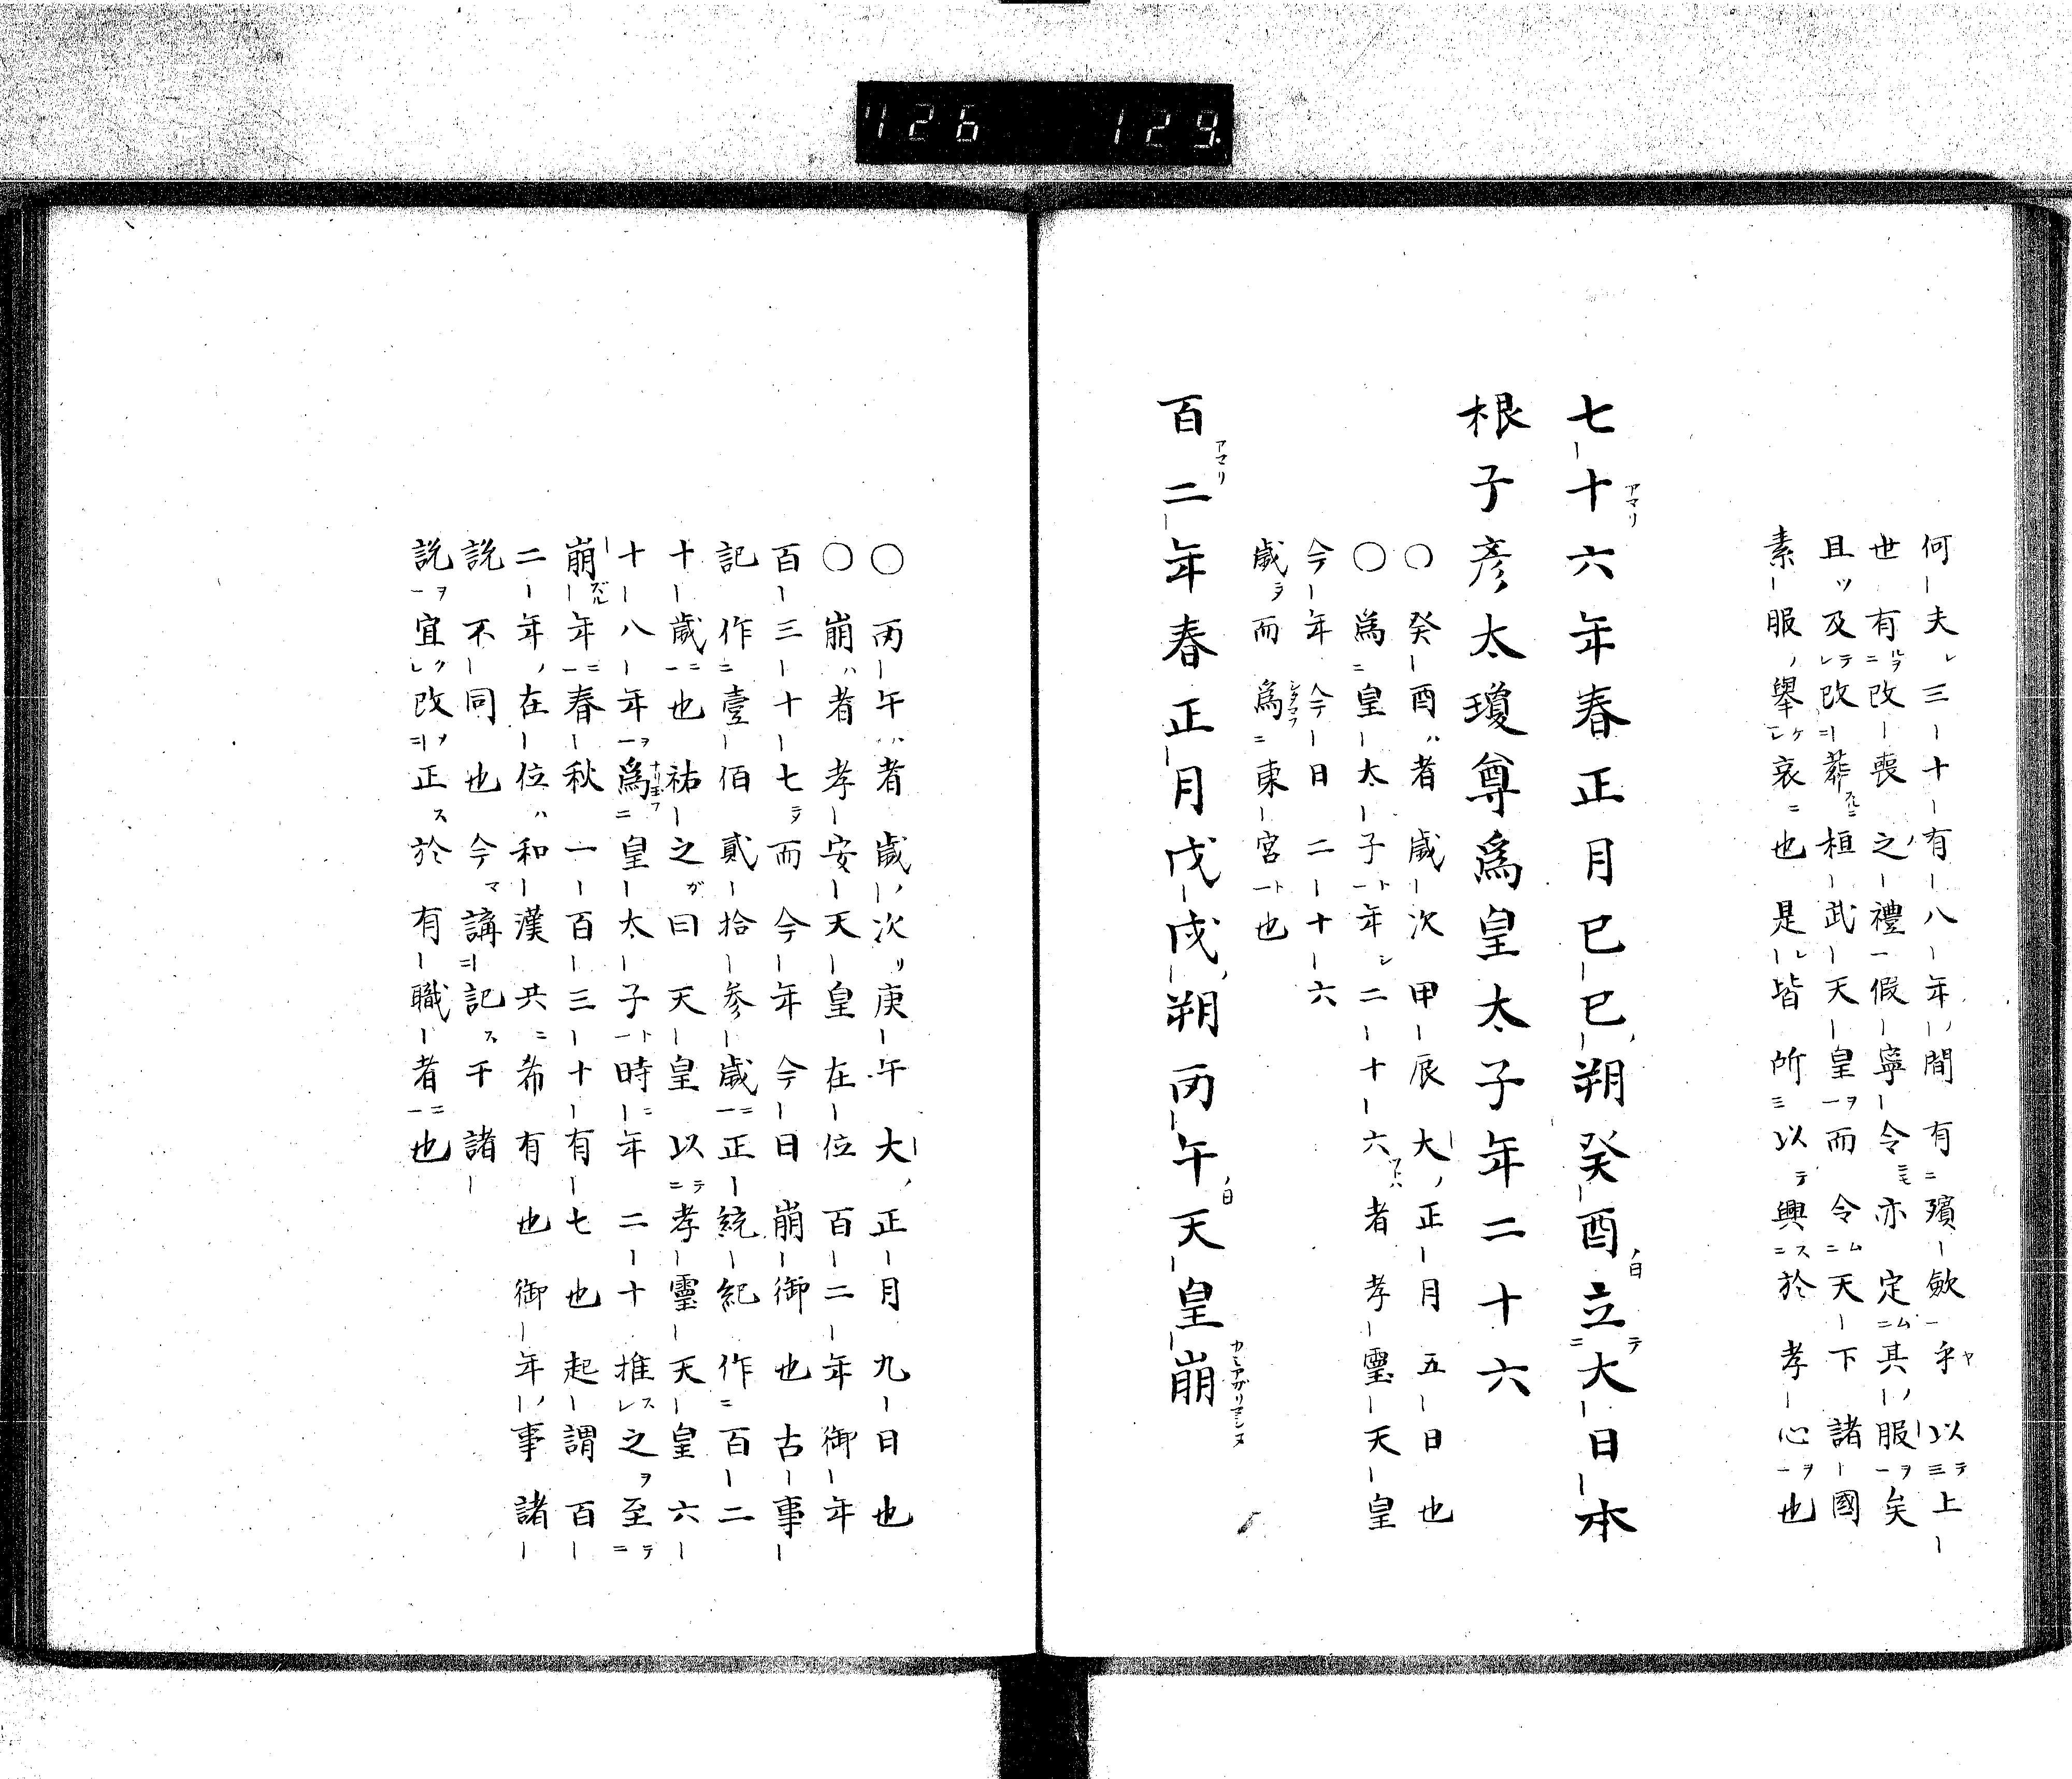 726 129
何夫三十有八年間有殯歛乎以上
世有改喪之禮假寧令亦定其服矣
且及改葬桓武天皇而令天下諸國
素服擧哀也是皆所以興於孝心也
七十六年春正月己巳朔癸酉立大日本
根子彥太瓊尊爲皇太子年二十六
〇癸酉者歲次甲辰大正月五日也
〇爲皇太子年二十六者孝靈天皇
今年今日二十六
歲而爲東宮也
百二年春正月戊戌朔丙午天皇崩
〇丙午者歲次庚午大正月九日也
〇崩者孝安天皇在位百二年御年
百三十七而今年今日崩御也古事
記作壹佰貳拾參歲正統紀作百二
十歲也祐之曰天皇以孝靈天皇六
十八年爲皇太子時年二十推之至
崩年春秋一百三十有七也起謂百
二年在位和漢共希有也御年事諸
說不同也今講記于諸
說宜改正於有職者也